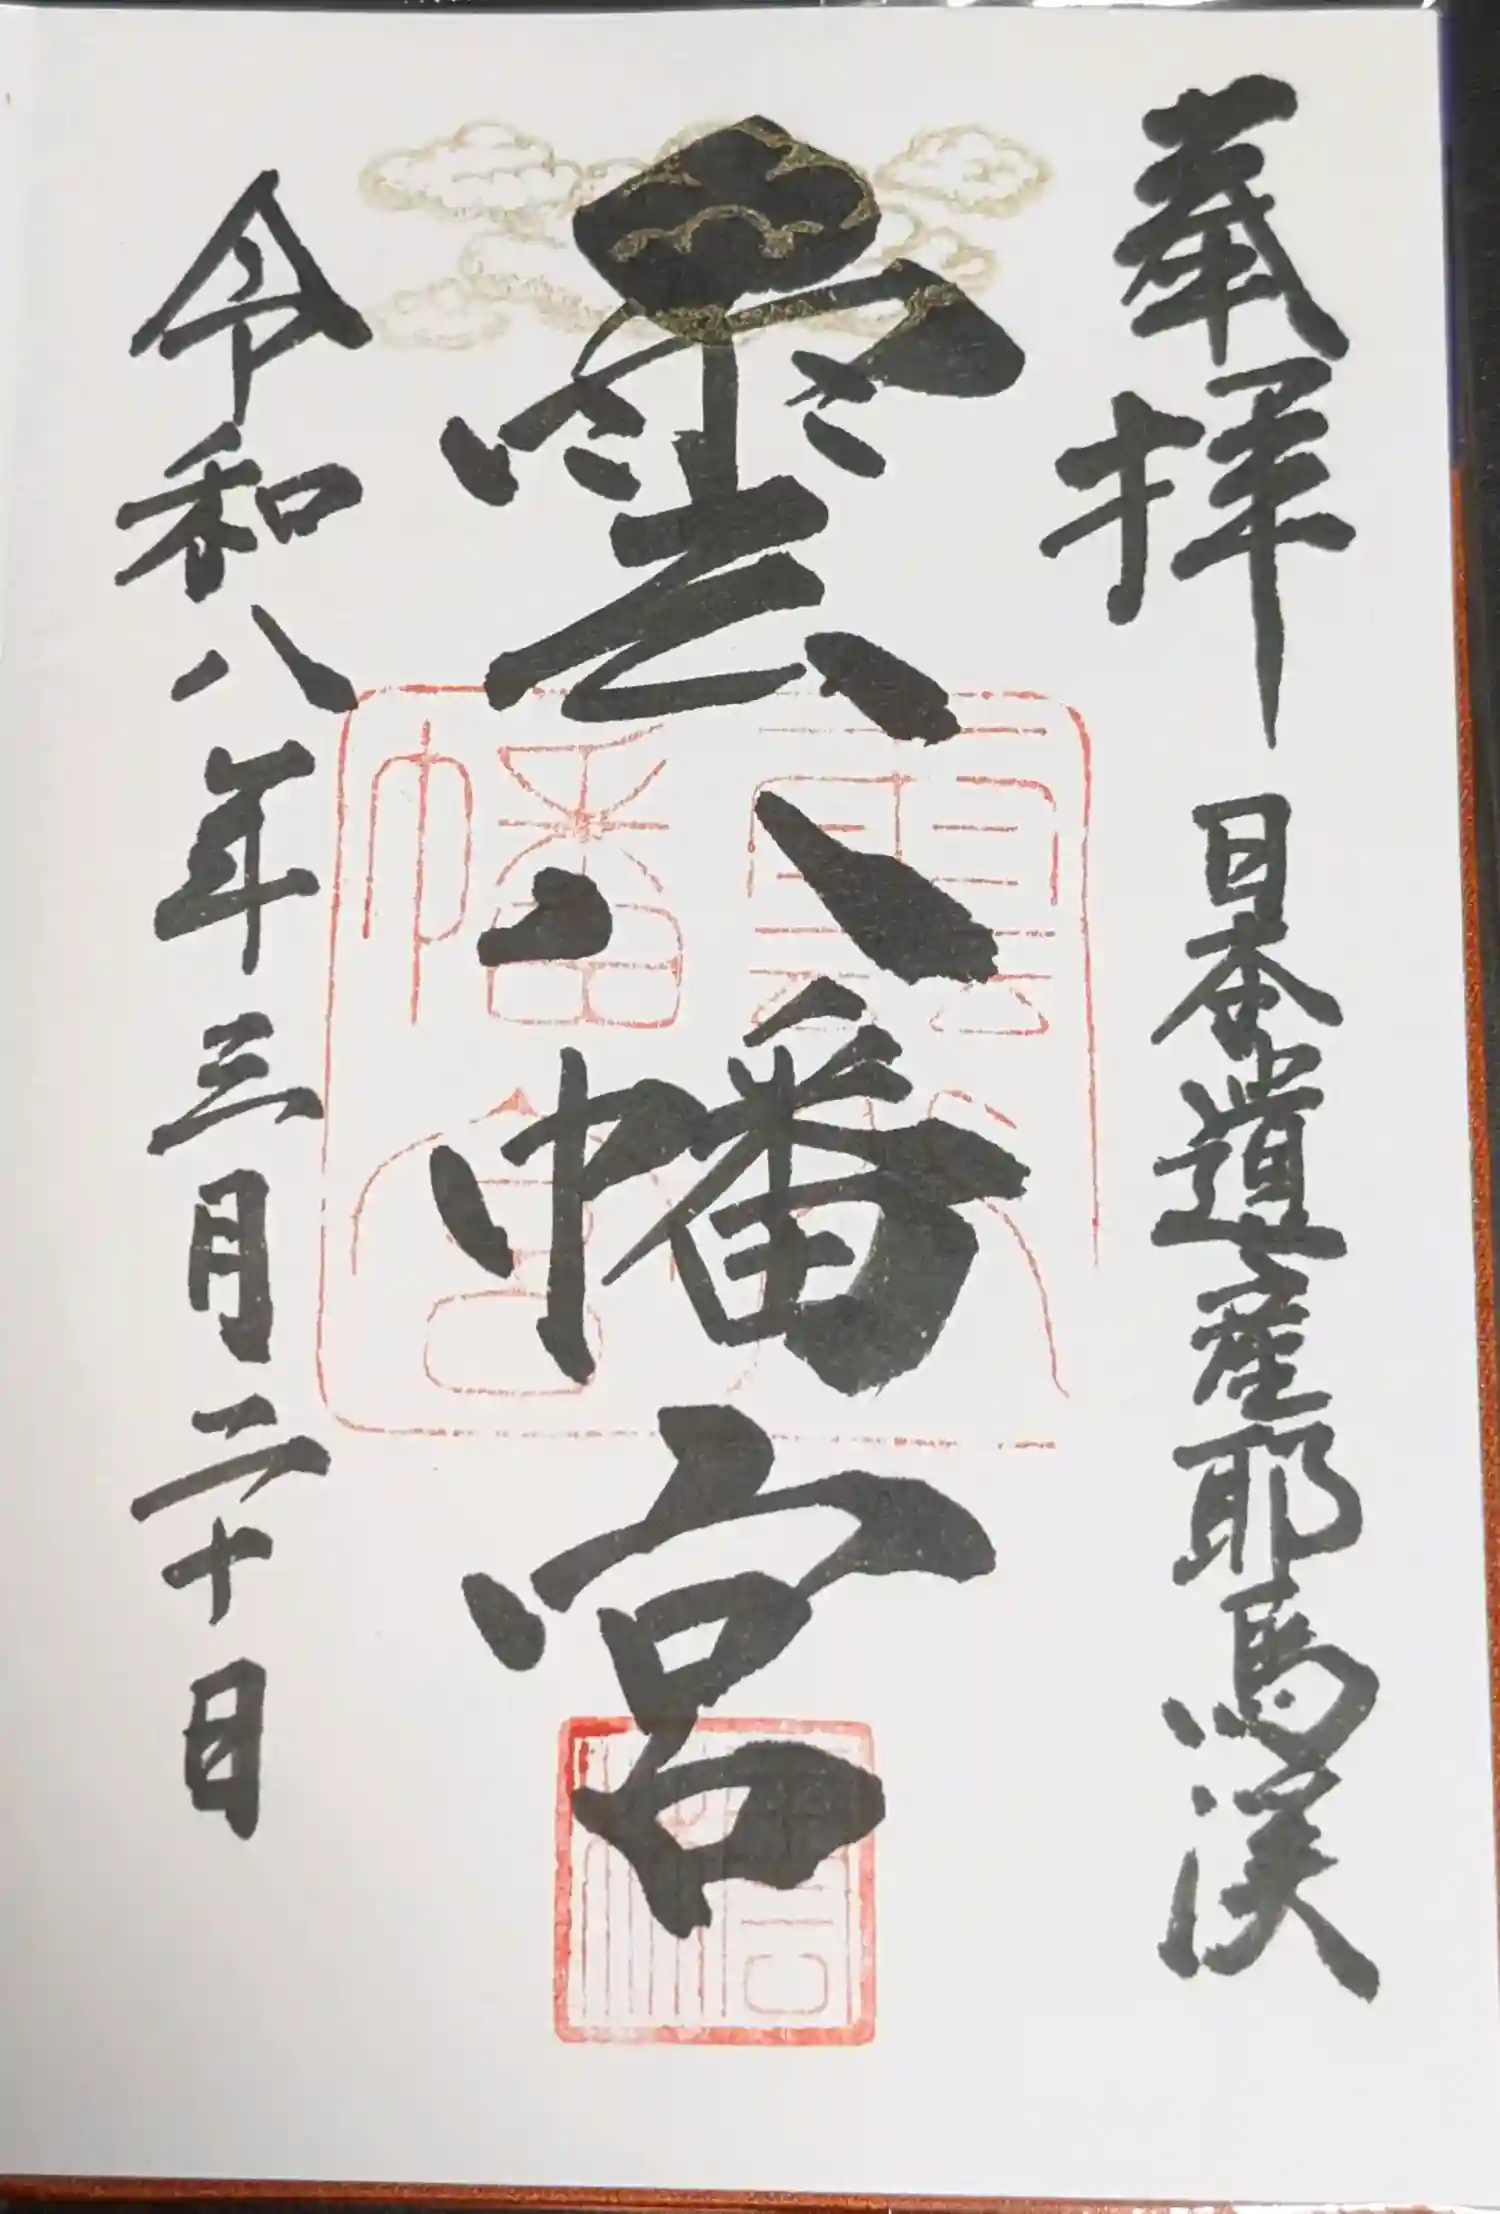 奉拝 日本遺産耶馬渓
雲八幡宮
令和八年三月二十日
雲八幡宮